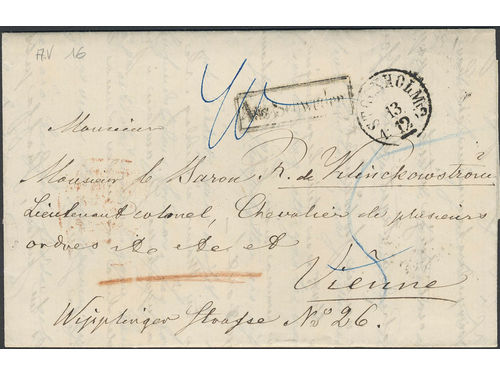 AV 16
STOCKHOLM
13
12
Aus Schweden
Monsieur
Monsieur le Baron R. de Klinckowström
Lieutenant colonel, Chevalier de plusieurs
ordres etc etc etc
Vienne
Wipplinger Strasse No 26.